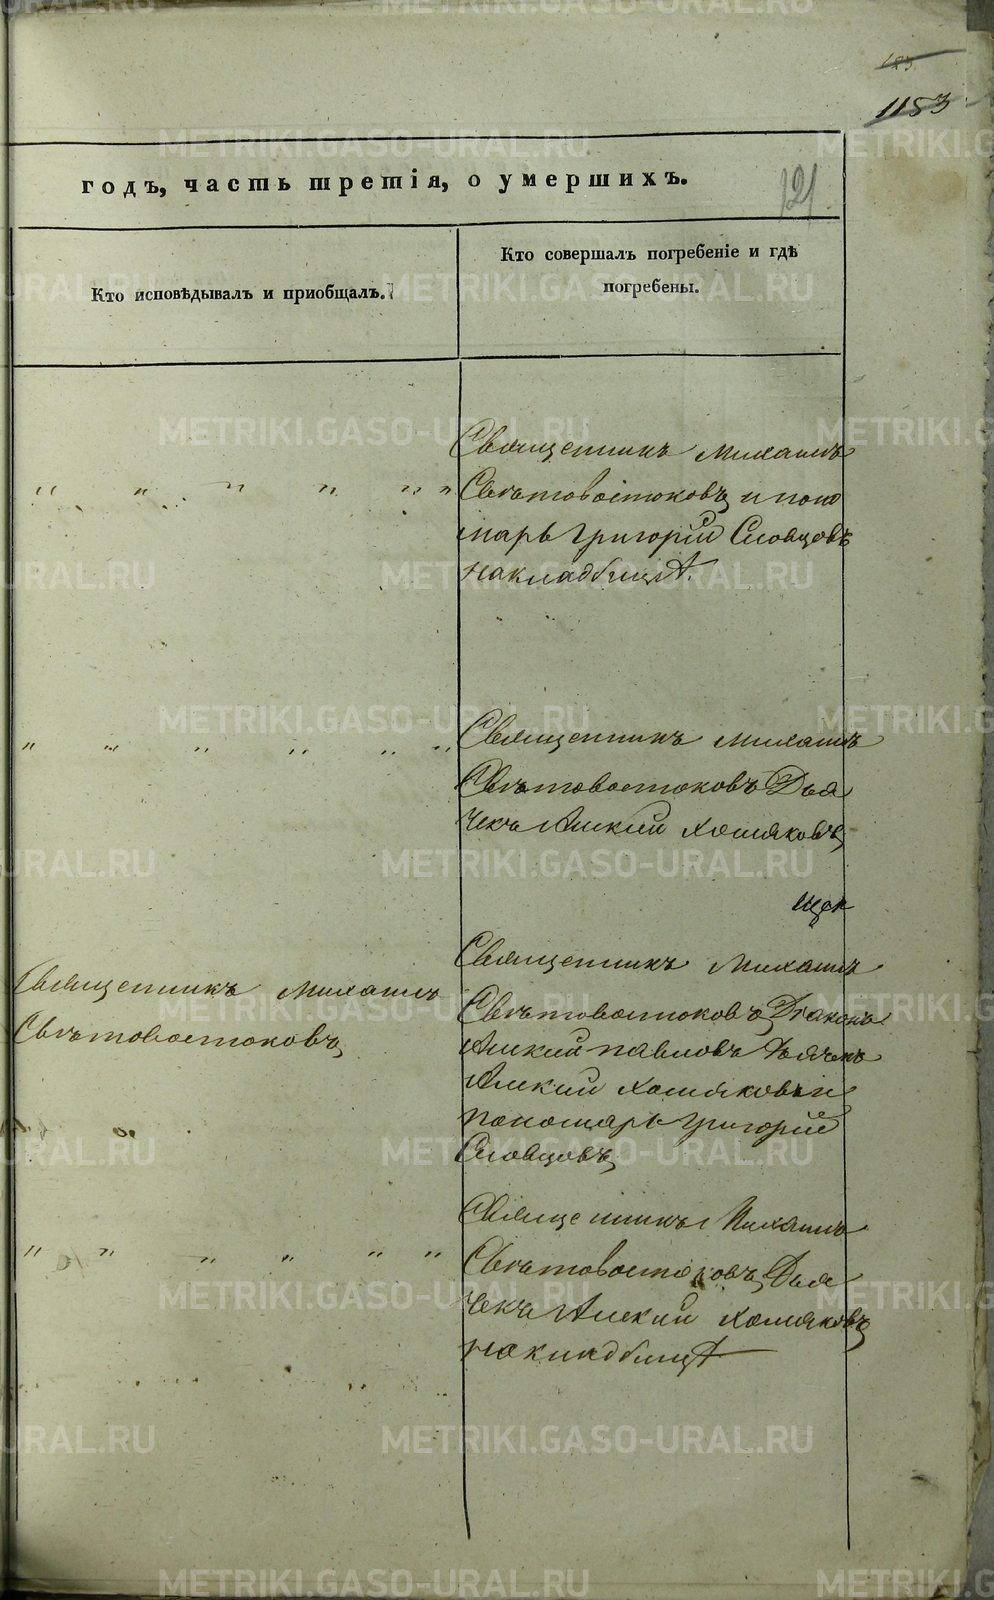 123
1183
годъ, часть третія, о умершихъ.
121
Кто исповѣдывалъ и приобщалъ.
Кто совершалъ погребеніе и гдѣ
погребены.
Священникъ Михаилъ
Свѣтовостоковъ и поно
марь Григорій Словцовъ
накладбищѣ.
Священникъ Михаилъ
Свѣтовостоковъ Дья
чекъ Алский Хомяковъ
Священникъ Михаилъ
Свѣтовостоковъ
Священникъ Михаилъ
Свѣтовостоковъ, Діаконъ
Алский Павловъ Дьячекъ
Алскии Хомяковъ и
пономарь Григорій
Словцовъ
Священникъ Михаилъ
Свѣтовостоковъ, Дья
чекъ Алскии Хомяковъ
накладбищѣ
METRIKI.GASO-URAL.RU